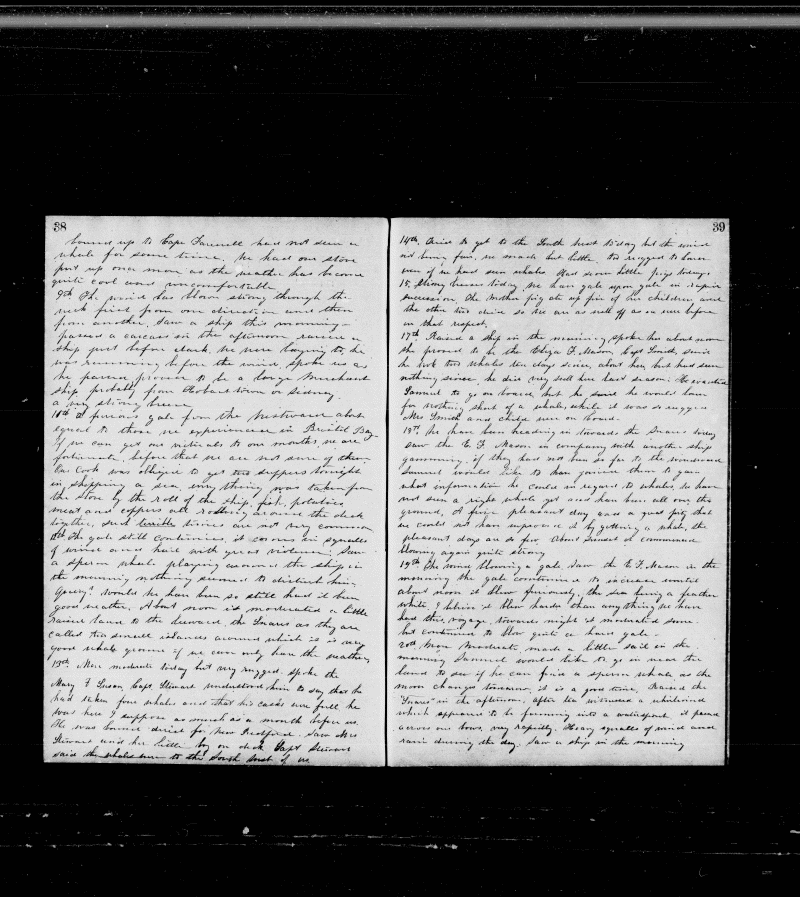 38
bound up to Cape Farwell had not seen a
whale for some time, We had our stove
put up once more as the weather has become
quite cool and uncomfortable.
9th The wind has blown strong through the
week first from one direction and then
from another, Saw a ship this morning
passed a carcass in the afternoon raised a
ship just before dark, We were laying to, he
was running before the wind, spoke us as
he passed, proved to be a large Merchant
ship probably from Hobart town or Sidney
a very strong breeze
10th A furious gale from the Westward about
equal to those we experienced in Bristol Bay.
If we can get our victuals to our mouths, we are
fortunate, before that we are not sure of them.
Our Cook was obliged to get two suppers tonight,
in shipping a sea, everything was taken from
the stove by the roll of the ship, fish, potatoes
meat and coppers all rolling around the deck
together, such terrible times are not very common
The gale still continues, it comes in squalls
of wind and hail with great violence; Saw
a sperm whale playing around the ship in
the morning nothing seemed to disturb him,
Query? Would he have been so still had it been
good weather. About noon it moderated a little
raised land to the leeward, the Snares as they are
called two small islands around which it is very
good whale ground if we could only have the weather,
13th More moderate today but very rugged, spoke the
Mary & Susan Capt. Steward understood him to say that he
had taken four whales and that his casks were full he
was here I suppose as much as a month before us.
He was bound direct for New Bedford. Saw Mrs
Stewart and her little boy on deck Capt Stewart
said the whales were to the South West of us
39
14th Tried to get to the South West today but the wind
not being fair, we made but little, too rugged to lower
even if we had seen whales Had seven little pigs today.
15 Strong breeses today we have gale upon gale in rapid
succession, The Mother pig ate up five of her children and
the other two died so we are as well off as we were before
in that respect,
17th Raised a ship in the morning spoke her about noon
she proved to be the Eliza F. Mason, Capt. Smith, said
he took two whales ten days since, about here but had seen
nothing since, he did very well here last season. He invited
Samuel to go on board, but he said he would lower
for nothing short of a whale, while it was so rugged
Mrs Smith and Child were on board.
18th We have been heading in towards the Snares today
saw the E. F. Mason in company with another ship
gamming, if they had not been so far to the windward
Samuel would like to have joined them to gain
what information he could in regard to whales, he have
not seen a right whale yet and have been all over the
ground, A fine pleasant day and a great pity that
we could not have improved it by getting a whale, the
pleasant days are so few, About Sunset it commenced
blowing again quite strong
19th The wind blowing a gale, Saw the E. F. Mason in the
morning the gale continued to increase until
about noon it blew furiously, the sea being a feather
white, I believe it blew harder than anything we have
had this voyage, towards night it moderated some
but continued to blow quite a hard gale.
20th More moderate made a little sail in the
morning Samuel would like to go in near the
land to see if he can find a sperm whale, as the
moon changes tomorrow, it is a good time, Raised the
"Snares" in the afternoon, after tea witnessed a whirlwind
which appeared to be forming into a waterspout, it passed
across our bows, very rapidly. Heavy squalls of wind and
rain during the day. Saw a ship in the morning